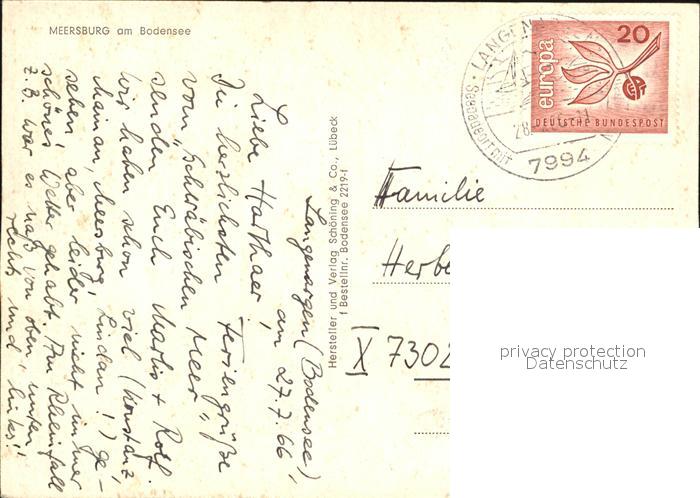 MEERSBURG am Bodensee
LANGEN
Seebadeort mit
28.
7994
20
europa
DEUTSCHE BUNDESPOST
Langenargen (Bodensee),
am 27.7.66
Liebe Harthaer!
Die herzlichsten Feriengrüße
vom "Schwäbischen Meer"
senden Euch Marlis + Rolf.
Wir haben schon viel (Konstanz,
Mainau, Meersburg, Lindau!) ge-
sehen aber leider nicht immer
schönes Wetter gehabt. Am Rheinfall
z.B. war es naß von oben, unten,
rechts und links!
Hersteller und Verlag Schöning & Co., Lübeck
Bestellnr. Bodensee 2219-f
Familie
Herbe
X 7302
privacy protection
Datenschutz